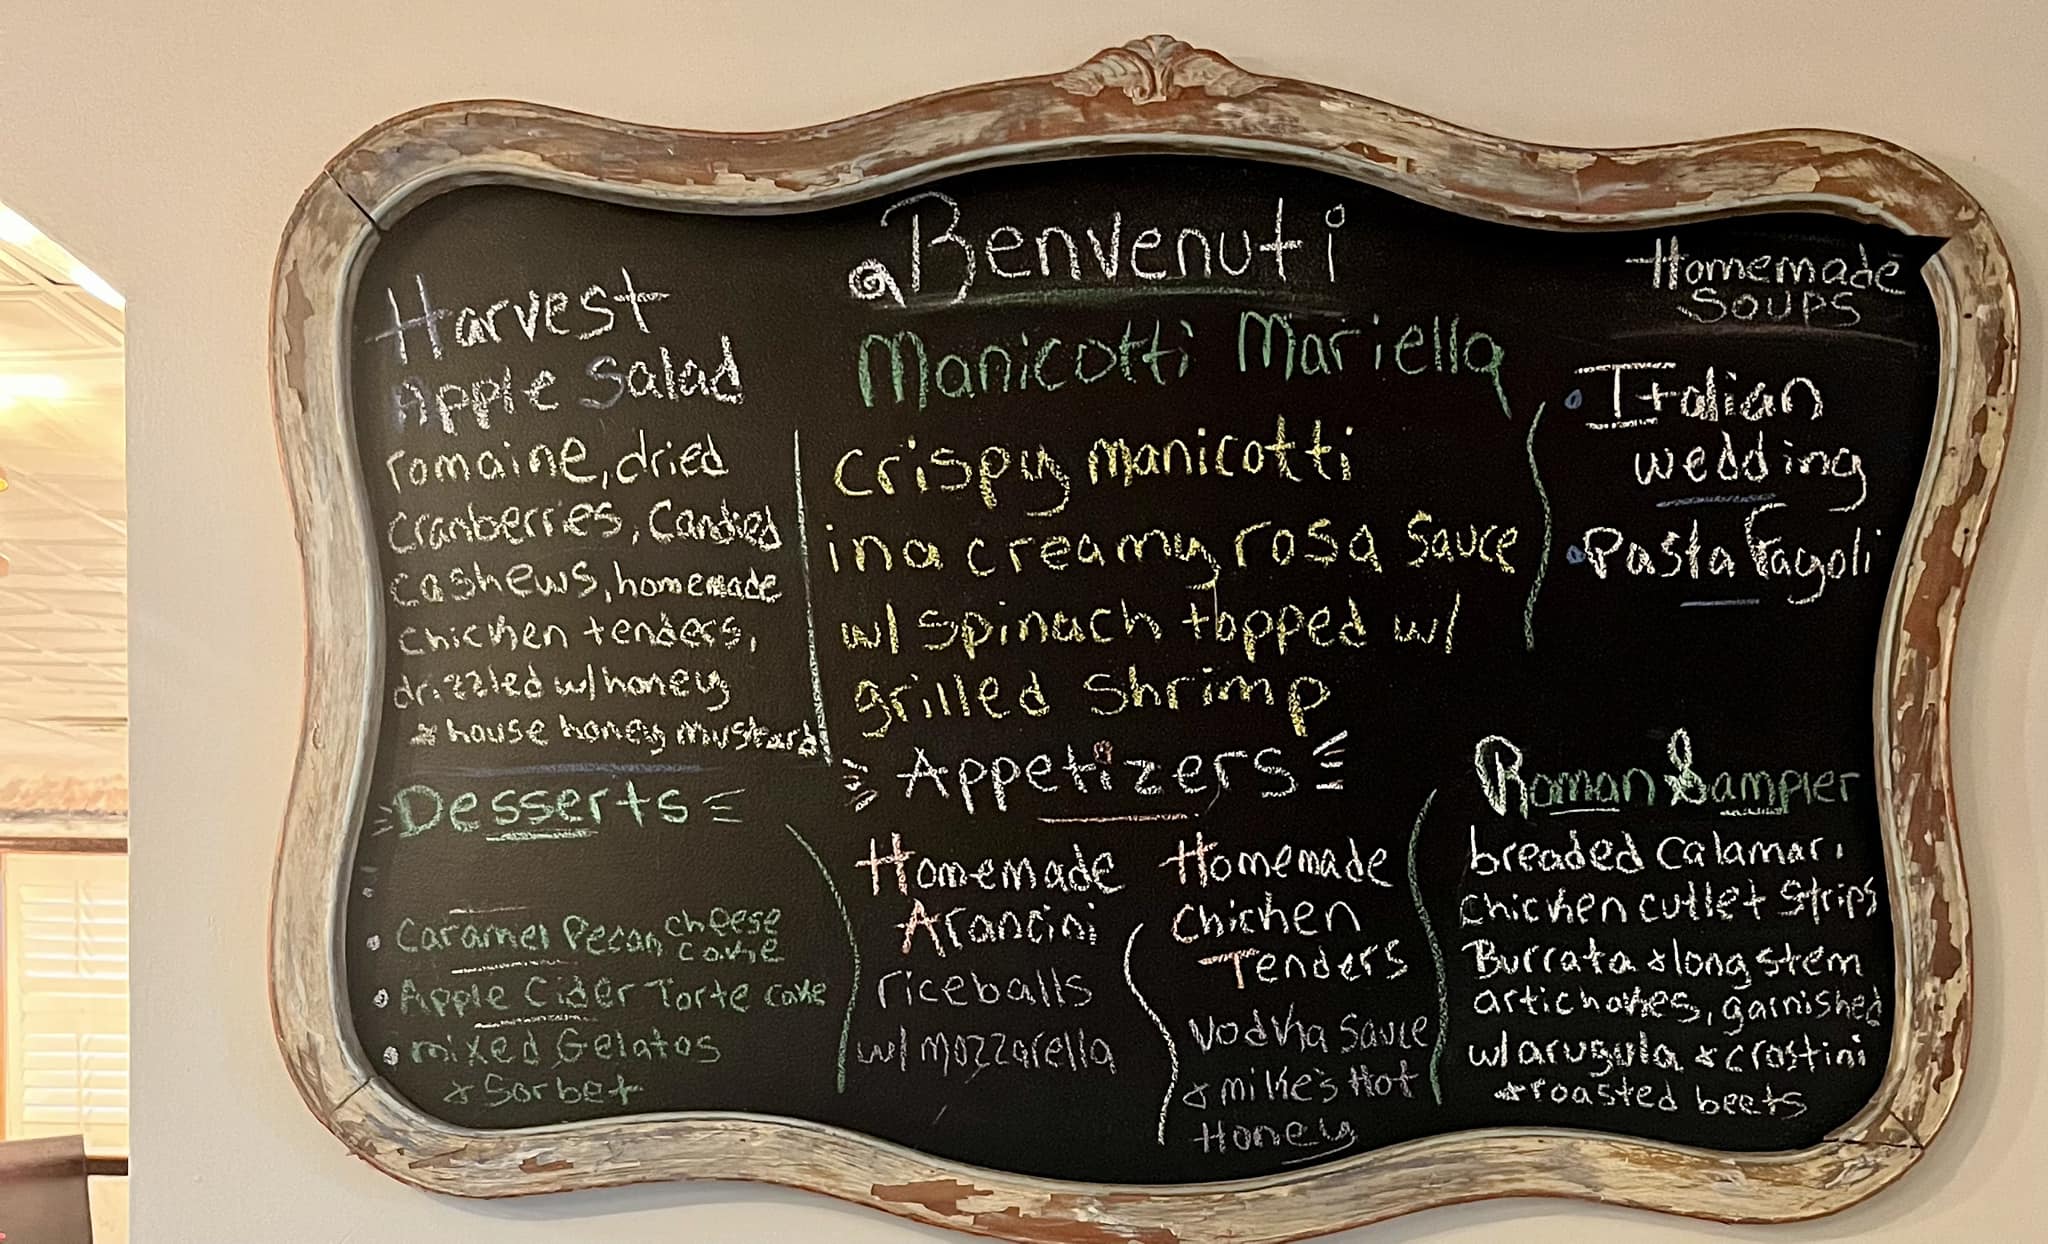 Benvenuti
Harvest
Apple Salad
romaine, dried
cranberries, Candied
cashews, homemade
chicken tenders,
drizzled w/honey
& house honey mustard
Manicotti Mariella
crispy manicotti
in a creamy rosa sauce
w/ spinach topped w/
grilled shrimp
Homemade
Soups
• Italian
wedding
• Pasta Fagoli
Desserts
• Caramel Pecan cheese
cake
• Apple Cider Torte cake
• mixed Gelatos
& Sorbet
Appetizers
Homemade
Arancini
riceballs
w/ mozzarella
Homemade
Chicken
Tenders
Vodka Sauce
& mike's Hot
Honey
Roman Sampler
breaded calamari
chicken cutlet strips
Burrata & long stem
artichokes, garnished
w/arugula & crostini
& roasted beets